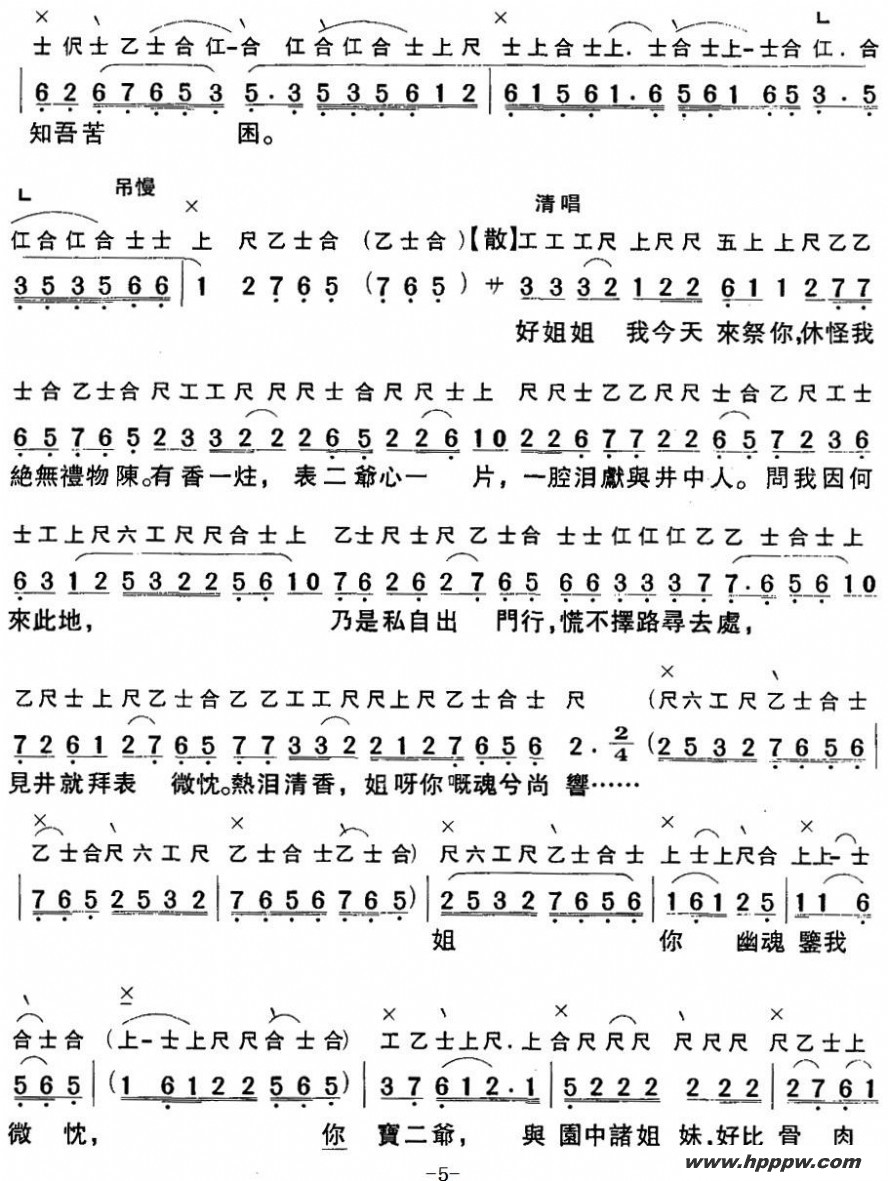 士伬士乙士合仜-合 仜合仜合士上尺 士上合士上.士合士上-士合仜.合
6 2 6 7 6 5 3 5·3 5 3 5 6 1 2 6 1 5 6 1·6 5 6 1 6 5 3·5
知吾苦 困。
吊慢 清唱
仜合仜合士士 上 尺乙士合 (乙士合)【散】工工工尺 上尺尺 五上上尺乙乙
3 5 3 5 6 6 1 2 7 6 5 (7 6 5) サ 3 3 3 2 1 2 2 6 1 1 2 7 7
好姐姐 我今天 來祭你,休怪我
士合乙士合尺工工尺 尺尺士合尺尺士上 尺尺士乙乙尺尺士合乙尺工士
6 5 7 6 5 2 3 3 2 2 2 6 5 2 2 6 1 0 2 2 6 7 7 2 2 6 5 7 2 3 6
絕無禮物陳。有香一炷，表二爺心一 片，一腔泪獻與井中人。問我因何
士工上尺六工尺尺合士上 乙士尺士尺 乙士合 士士仜仜仜乙乙 士合士上
6 3 1 2 5 3 2 2 5 6 1 0 7 6 2 6 2 7 6 5 6 6 3 3 3 7 7·6 5 6 1 0
來此地， 乃是私自出 門行,慌不擇路尋去處，
乙尺士上尺乙士合乙乙工工尺尺上尺乙士合士 尺 (尺六工尺乙士合士
7 2 6 1 2 7 6 5 7 7 3 3 2 2 1 2 7 6 5 6 2· 2/4 (2 5 3 2 7 6 5 6
見井就拜表 微忱。熱泪清香，姐呀你嘅魂兮尚 響……
乙士合尺六工尺 乙士合士乙士合) 尺六工尺乙士合士 上士上尺合 上上-士
7 6 5 2 5 3 2 7 6 5 6 7 6 5) 2 5 3 2 7 6 5 6 1 6 1 2 5 1 1 6
姐 你 幽魂鑒我
合士合 (上-士上尺尺合士合) 工乙士上尺.上合尺尺尺 尺尺尺 尺乙士上
5 6 5 (1 6 1 2 2 5 6 5) 3 7 6 1 2·1 5 2 2 2 2 2 2 2 7 6 1
微忱， 你 寶二爺， 與園中諸姐 妹,好比骨 肉
www.hpppw.com
-5-